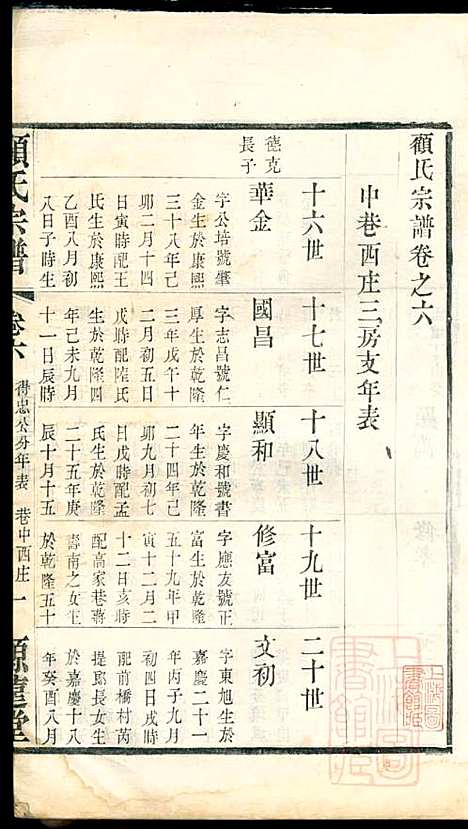 顧氏宗譜卷之六
中巷西庄三房支年表
十六世
十七世
十八世
十九世
二十世
德克
長子
華金
字公培號肇
金生於康熙
三十八年己
卯二月十四
日寅時配王
氏生於康熙
乙酉八月初
八日子時生
國昌
字志昌號仁
厚生於乾隆
三年戊午十
二月初五日
戌時配陸氏
生於乾隆四
年己未九月
十一日辰時
顯和
字慶和號書
年生於乾隆
二十四年己
卯九月初七
日戌時配孟
氏生於乾隆
二十五年庚
辰十月十五
修富
字應友號正
富生於乾隆
五十九年甲
寅十二月二
十二日亥時
配高家巷蔣
壽南之女生
於乾隆五十
文初
字東旭生於
嘉慶二十一
年丙子九月
初四日戌時
配前橋村芮
提郎長女生
於嘉慶十八
年癸酉八月
顧氏宗譜
卷六
得忠公分年表
巷中西庄
一
上海圖書館藏